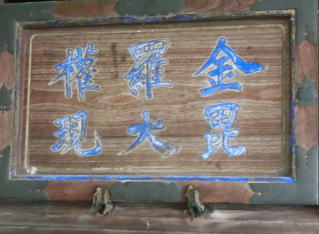 金毘
羅大
權現